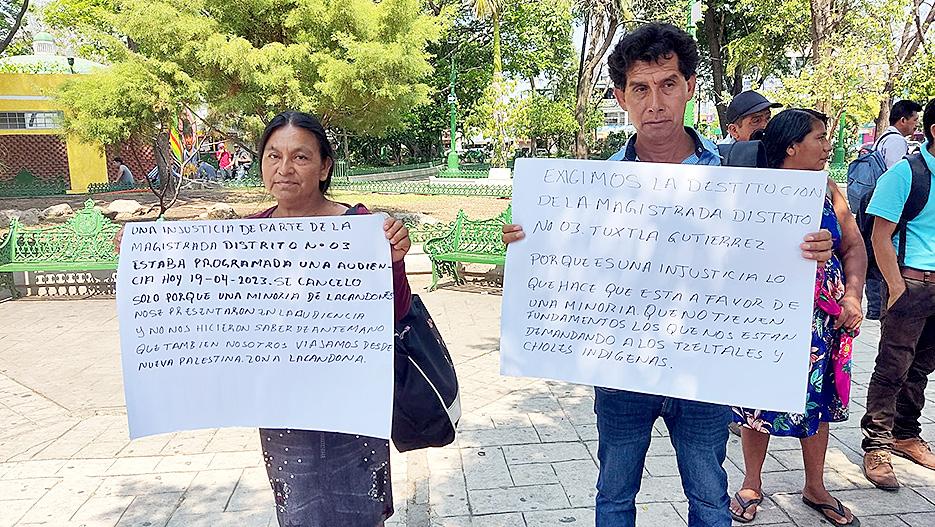 UNA INJUSTICIA DE PARTE DE LA
MAGISTRADA DISTRITO Nº 03
ESTABA PROGRAMADA UNA AUDIEN-
CIA HOY 19-04-2023. SE CANCELO
SOLO PORQUE UNA MINORIA DE LACANDONES
NO SE PRESENTARON EN LA AUDIENCIA
Y NO NOS HICIERON SABER DE ANTEMANO
QUE TAMBIEN NOSOTROS VIAJAMOS DESDE
NUEVA PALESTINA. ZONA LACANDONA.
EXIGIMOS LA DESTITUCION
DE LA MAGISTRADA DISTRITO
Nº 03. TUXTLA GUTIERREZ
PORQUE ES UNA INJUSTICIA LO
QUE HACE QUE ESTA A FAVOR DE
UNA MINORIA. QUE NO TIENEN
FUNDAMENTOS LOS QUE NOS ESTAN
DEMANDANDO A LOS TZELTALES Y
CHOLES INDIGENAS.